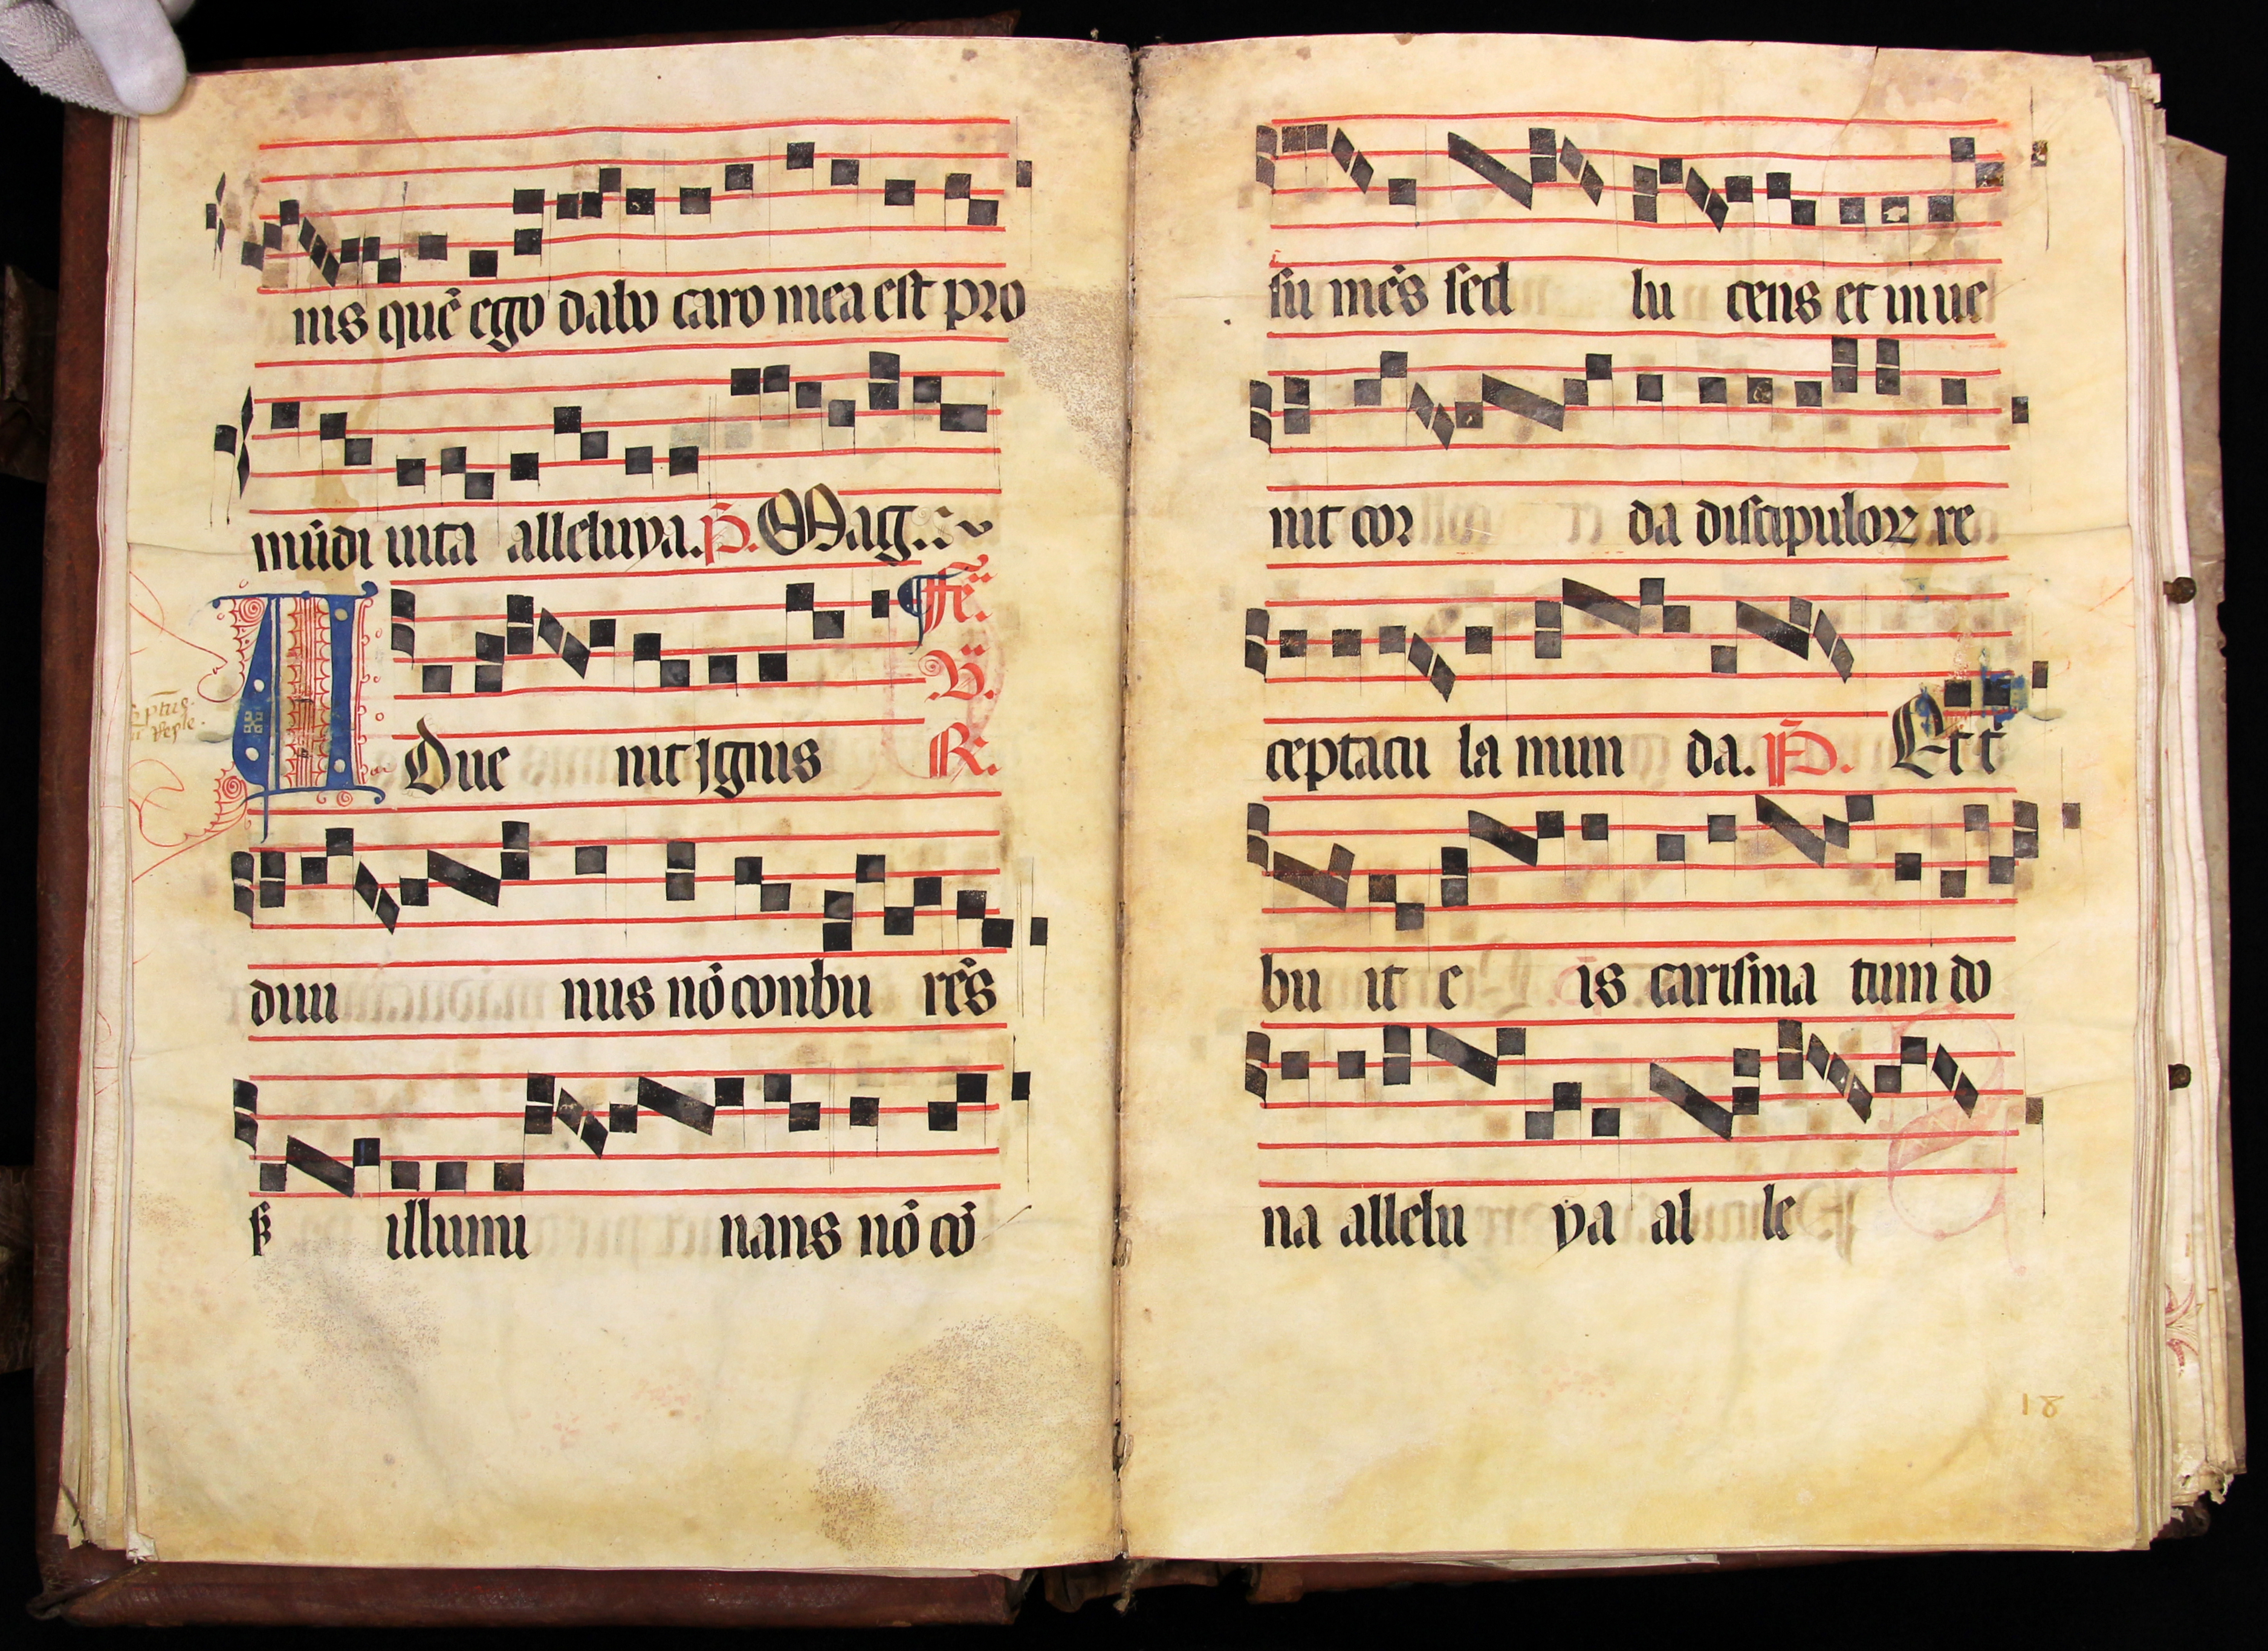 nis quē ego dabo caro mea est pro
mūdi uita alleluya. P̄. Mag.
Fē. ii.
B.
Adue nit ignis R.
diui nus nō conbu rēs
sꝫ illumi nans nō cō
su mēs sed lu cens et inue
nit cor da discipuloꝝ re
ceptacu la mun da. P̄. Et t
bu it e is carisma tum do
na allelu ya al le
18